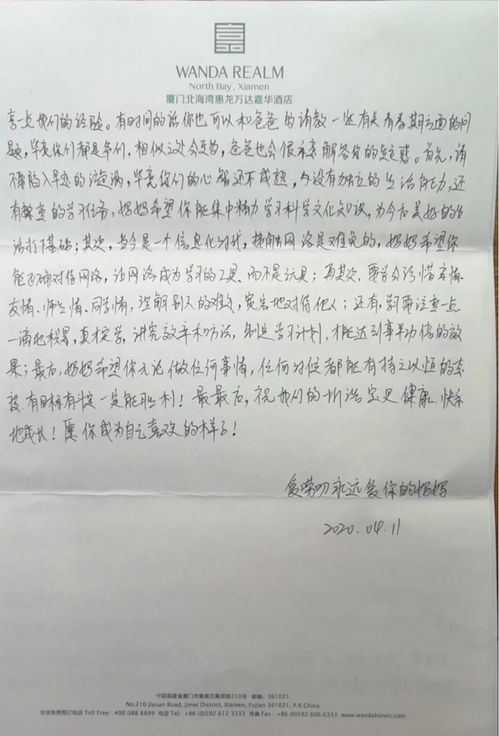 WANDA REALM
North Bay, Xiamen
厦门北海湾惠龙万达嘉华酒店
享一点我们的经验。有时间的话你也可以和爸爸 的请教一些有关青春期方面的问
题,毕竟你们都是男们,相似之处会更多,爸爸也会很乐意解答你的疑惑。首先,请
不要陷入早恋的漩涡,毕竟你们的心智还不成熟,也没有独立的生活能力,还
有繁重的学习任务,妈妈希望你能集中精力学习科学文化知识,为今后美好的生
活打下基础;其次,当今是一个信息化时代,接触网络是难免的,妈妈希望你
能正确对待网络,让网络成为学习的工具、而不是玩具;再其次,要学会珍惜亲情、
友情、师生情、同学情,理解别人的难处,宽容地对待他人;还有,学习要注重一点
一滴地积累,真才实学,讲究效率和方法,制定学习计划,才能达到事半功倍的效
果;最后,妈妈希望你无论做任何事情,任何时候都能有持之以恒的态
度,有目标有斗志一定能胜利!最最后,祝我们的 宝贝健康、快乐
地成长!愿你成为自己喜欢的样子!
爱 永远爱你的妈妈
2020.04.11
中国福建省厦门市集美区集源路210号 邮编:361021
No.210 Jiyuan Road, Jimei District, Xiamen, Fujian 361021, P.R.China
全球免费预订电话 Toll Free. 400 088 8899 电话 Tel +86 (0)592 612 3333 传真 Fax +86 (0)592 606 6333 www.wandahotels.com